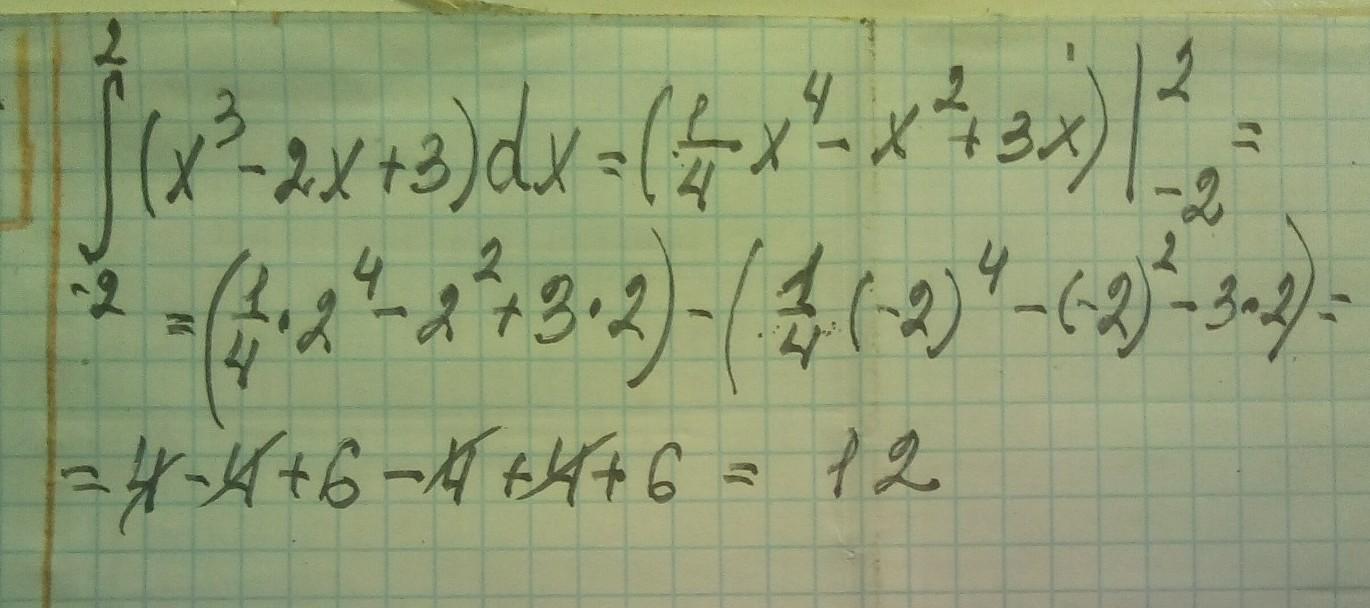 ∫₋₂² (x³ - 2x + 3)dx = (1/4 x⁴ - x² + 3x) |₋₂² =
= (1/4 · 2⁴ - 2² + 3 · 2) - (1/4 · (-2)⁴ - (-2)² - 3 · 2) =
= 4 - 4 + 6 - 4 + 4 + 6 = 12